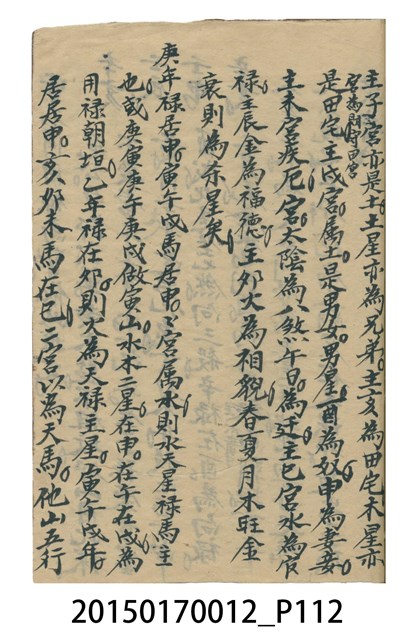 主子宮亦是土土星亦為兄弟主亥為田宅木星亦
宮為閑守田宮
是田宅主戌宮属土是男女男星酉為奴申為妻妾
主未宮疾厄宮太陰為八煞午日為迁主巳宮水為官
禄主辰金為福德主卯火為相貌春夏月木旺金
衰則為亦星矣
庚年禄居申寅午戌馬居申々宮属水則水天星禄馬主
也或庚寅庚午庚戌做寅山水木二星在申在午在戌為
用禄朝垣乙年禄在卯則火為天禄主星寅午戌年
居居申亥卯未馬在巳二宮以為天馬他山五行
20150170012_P112